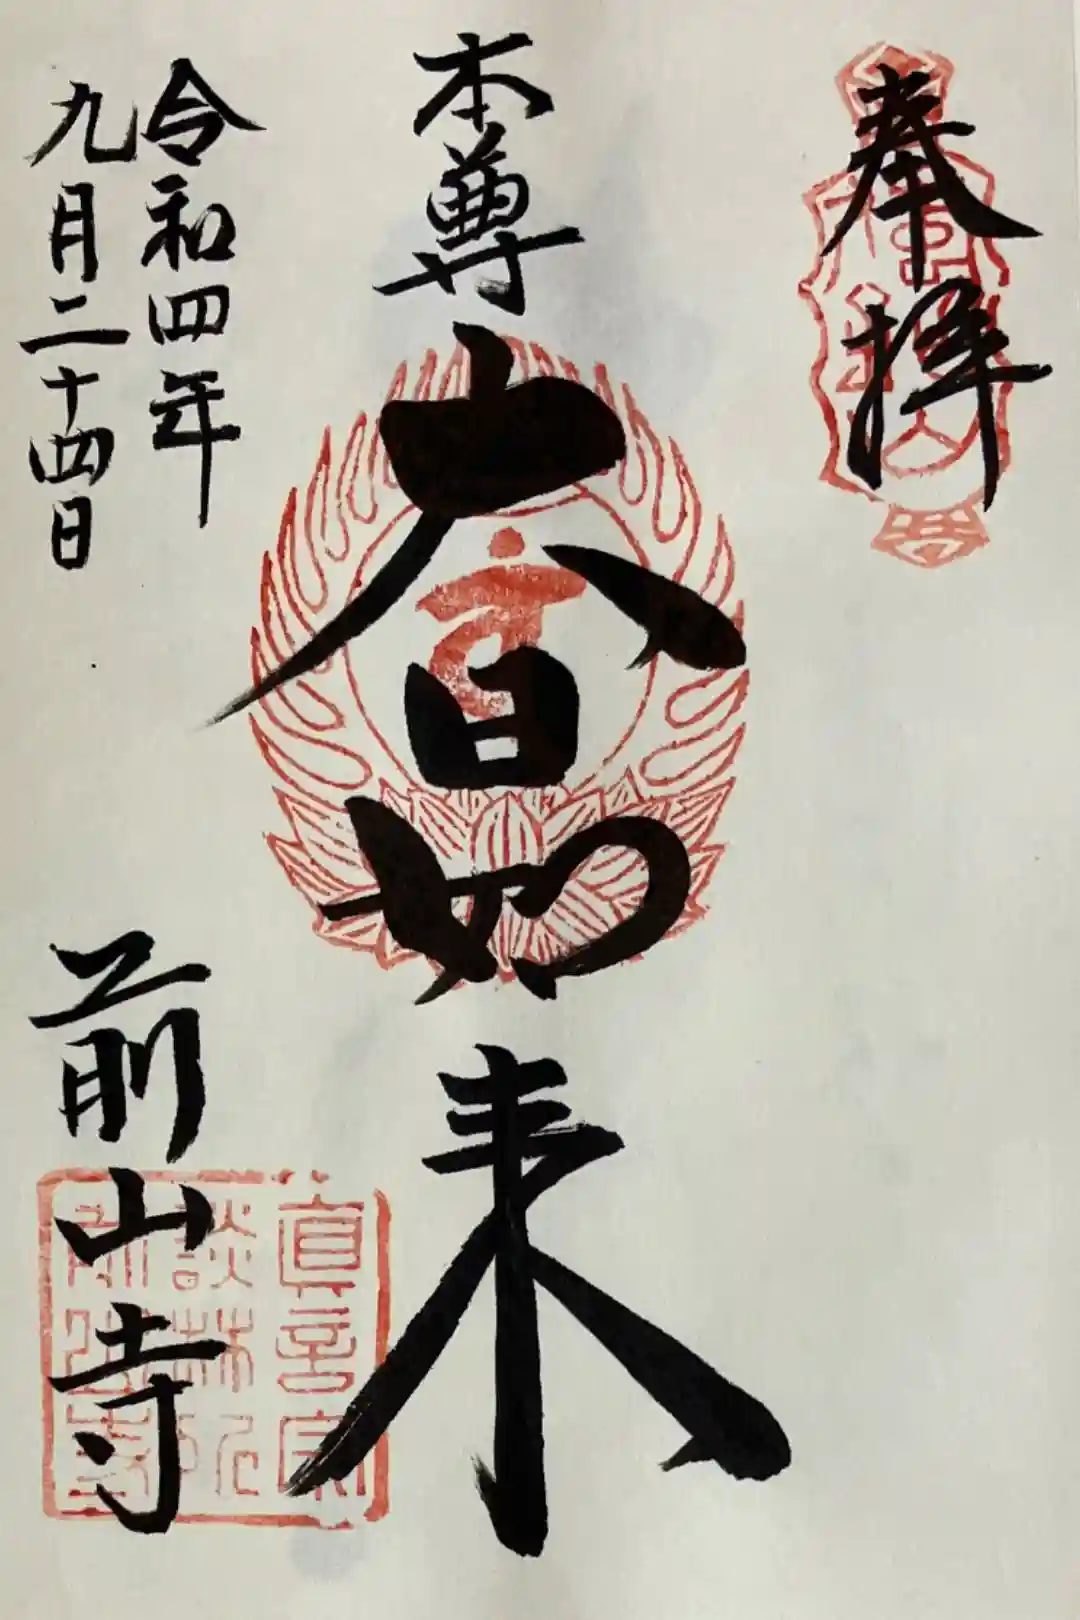 奉拝
本尊
大日如来
令和四年
九月二十四日
前山寺
真言宗
談林所
前山寺